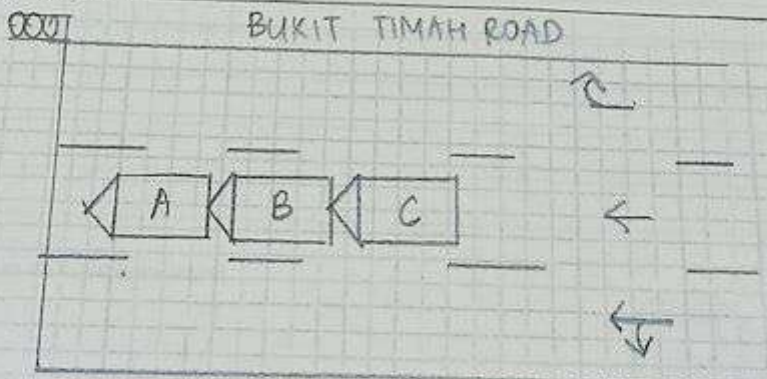 BUKIT TIMAH ROAD
A B C